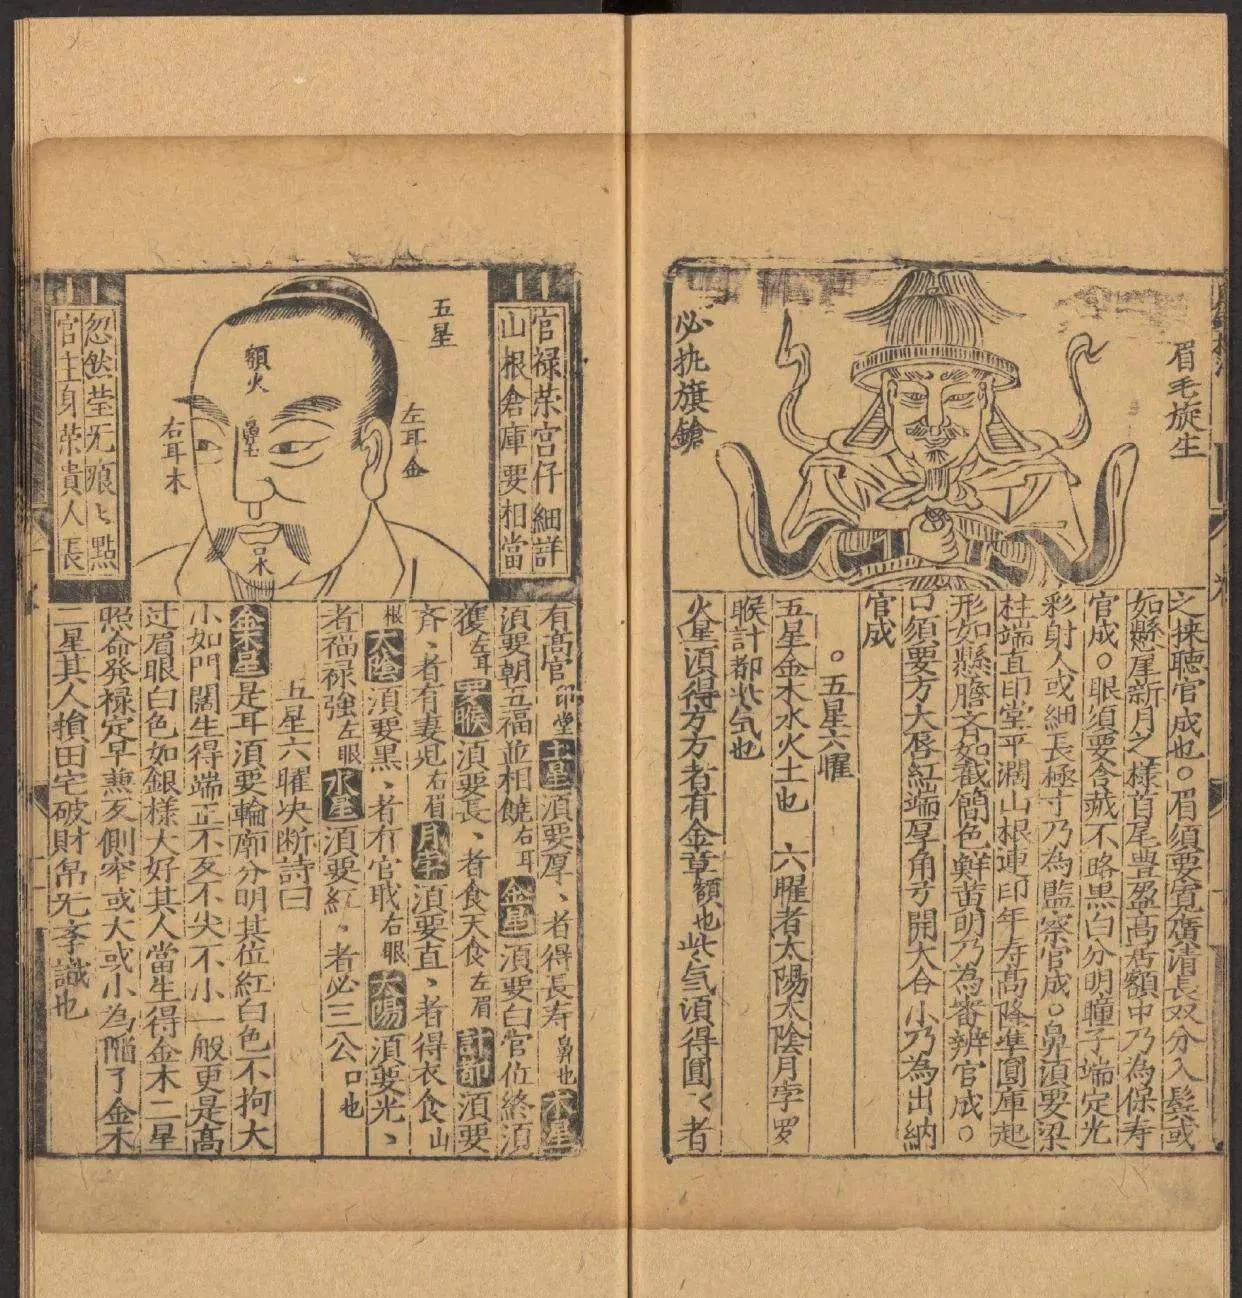 眉毛旋生
必执旗鎗
之採聽官成也○眉須要寛廣清長双分入鬂或
如懸犀新月之樣首尾豊盈高居額中乃為保寿
官成○眼須要含藏不露黒白分明瞳子端定光
彩射人或細長極寸乃為監察官成○鼻須要梁
柱端直印堂平濶山根連印年寿高隆準圓庫起
形如懸膽斉如截筒色鮮黄明乃為審辨官成○
口須要方大唇紅端厚角弓開大合小乃為出納
官成
○五星六曜
五星金木水火土也 六曜者太陽太陰月孛罗
睺計都紫气也
火星須得方方者有金章額也紫気須得圓〻者
官禄荣宫仔細詳
山根倉庫要相當
五星
額火
鼻土
左耳金
右耳木
口水
忽然莹无痕〻點
官主身荣貴人長
有高官印堂土星須要厚、者得長寿鼻也木星
須要朝五福並相饒右耳金星須要白官位終須
獲左耳罗睺須要長、者食天食左眉計都須要
斉、者有妻児右眉月孛須要直、者得衣食山
根太陰須要黒、者有官职右眼太陽須要光、
者福禄強左眼水星須要紅、者必三公口也
五星六曜决断詩曰
金木星是耳須要輪廓分明其位紅白色不拘大
小如門闊生得端正不反不尖不小一般更是高
过眉眼白色如銀樣大好其人當生得金木二星
照命發禄定早㷊反側窄或大或小為陷了金木
二星其人損田宅破財帛无孝識也